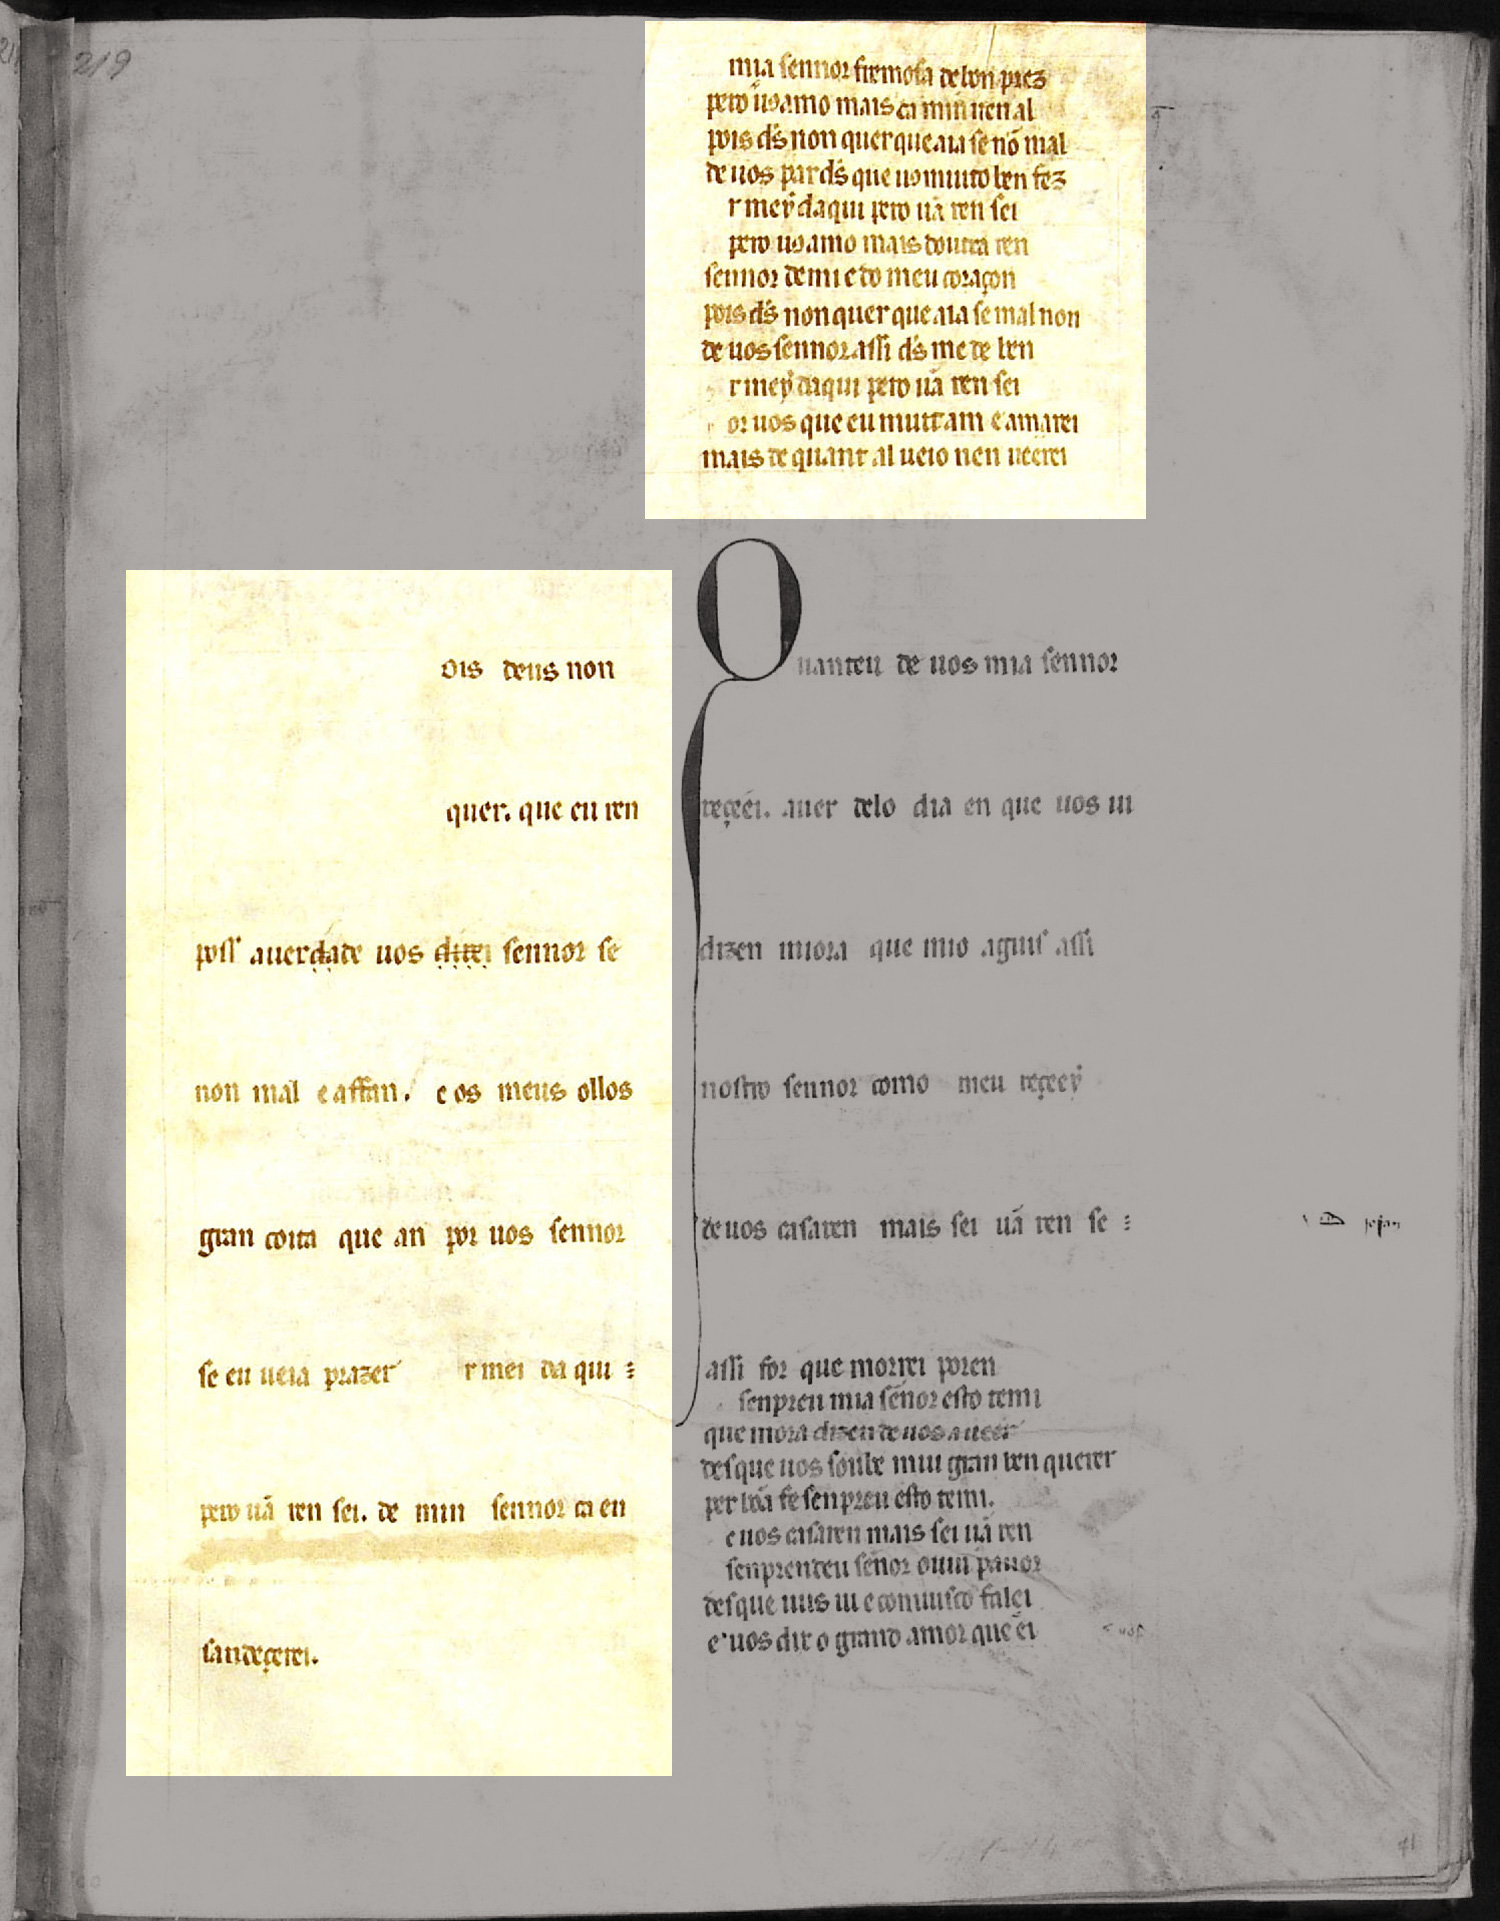 219
ois deus non
quer. que eu ren
poss auerdade uos direi sennor se
non mal e affan. e os meus ollos
gran coita que an por uos sennor
se eu ueia prazer r mei da qui :
pero uã ren sei. de min sennor ca en
sandeçerei.
mia sennor fremosa de bon prez
pero uos amo mais ca min nen al
pois d's non quer que aia se nõ mal
de uos par d's que uo muito ben fez
r meỹ daqui pero uã ren sei
pero uos amo mais doutra ren
sennor de mi e do meu coraçon
pois d's non quer que aia se mal non
de uos sennor assi d's me de ben
r meỹ daqui pero uã ren sei
or uos que eu muit am e amarei
mais de quant al ueio nen ueerei
Quanteu de uos mia sennor
reçeei. auer delo dia en que uos ui
dizen miora que mio aguis assi
nostro sennor como meu reçeeỹ
de uos casaren mais sei uã ren se :
assi for que morrei poren
senpreu mia señor esto temi
que mora dizen de uos aueer
desque uos soube mui gran ben querer
per bõa fe senpreu esto temi.
e uos casaren mais sei uã ren
senprendeu señor ouui pauor
desque uus ui e conuusco falei
e uos dix o grand amor que ei
41